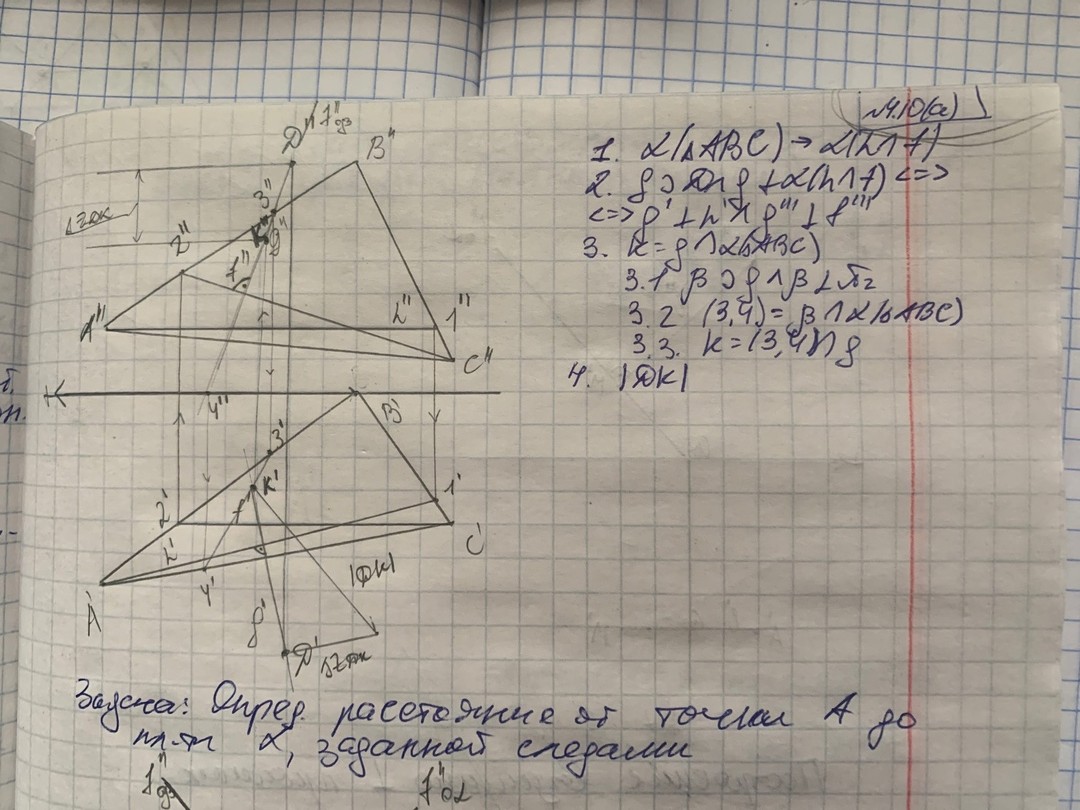 №10(а)
1. α(ΔABC) → α(h∩f)
2. g ∋ D∧g ⊥ α(h∩f) <=>
<=> g' ⊥ h' ∧ g''' ⊥ f'''
3. K = g ∩ α(ΔABC)
3.1 β ∋ g ∧ β ⊥ π₂
3.2 (3,4) = β ∩ α(ΔABC)
3.3. K = (3,4) ∩ g
4. |DK|
D''
B''
ΔZDK
3''
2''
g''
f''
A''
h''
1''
C''
4''
B'
3'
K'
2'
1'
h'
C'
4'
A'
|DK|
g'
D'
ΔZDK
Задача: Опред. расстояние от точки A до
пл-ти α, заданной следами
f''0α